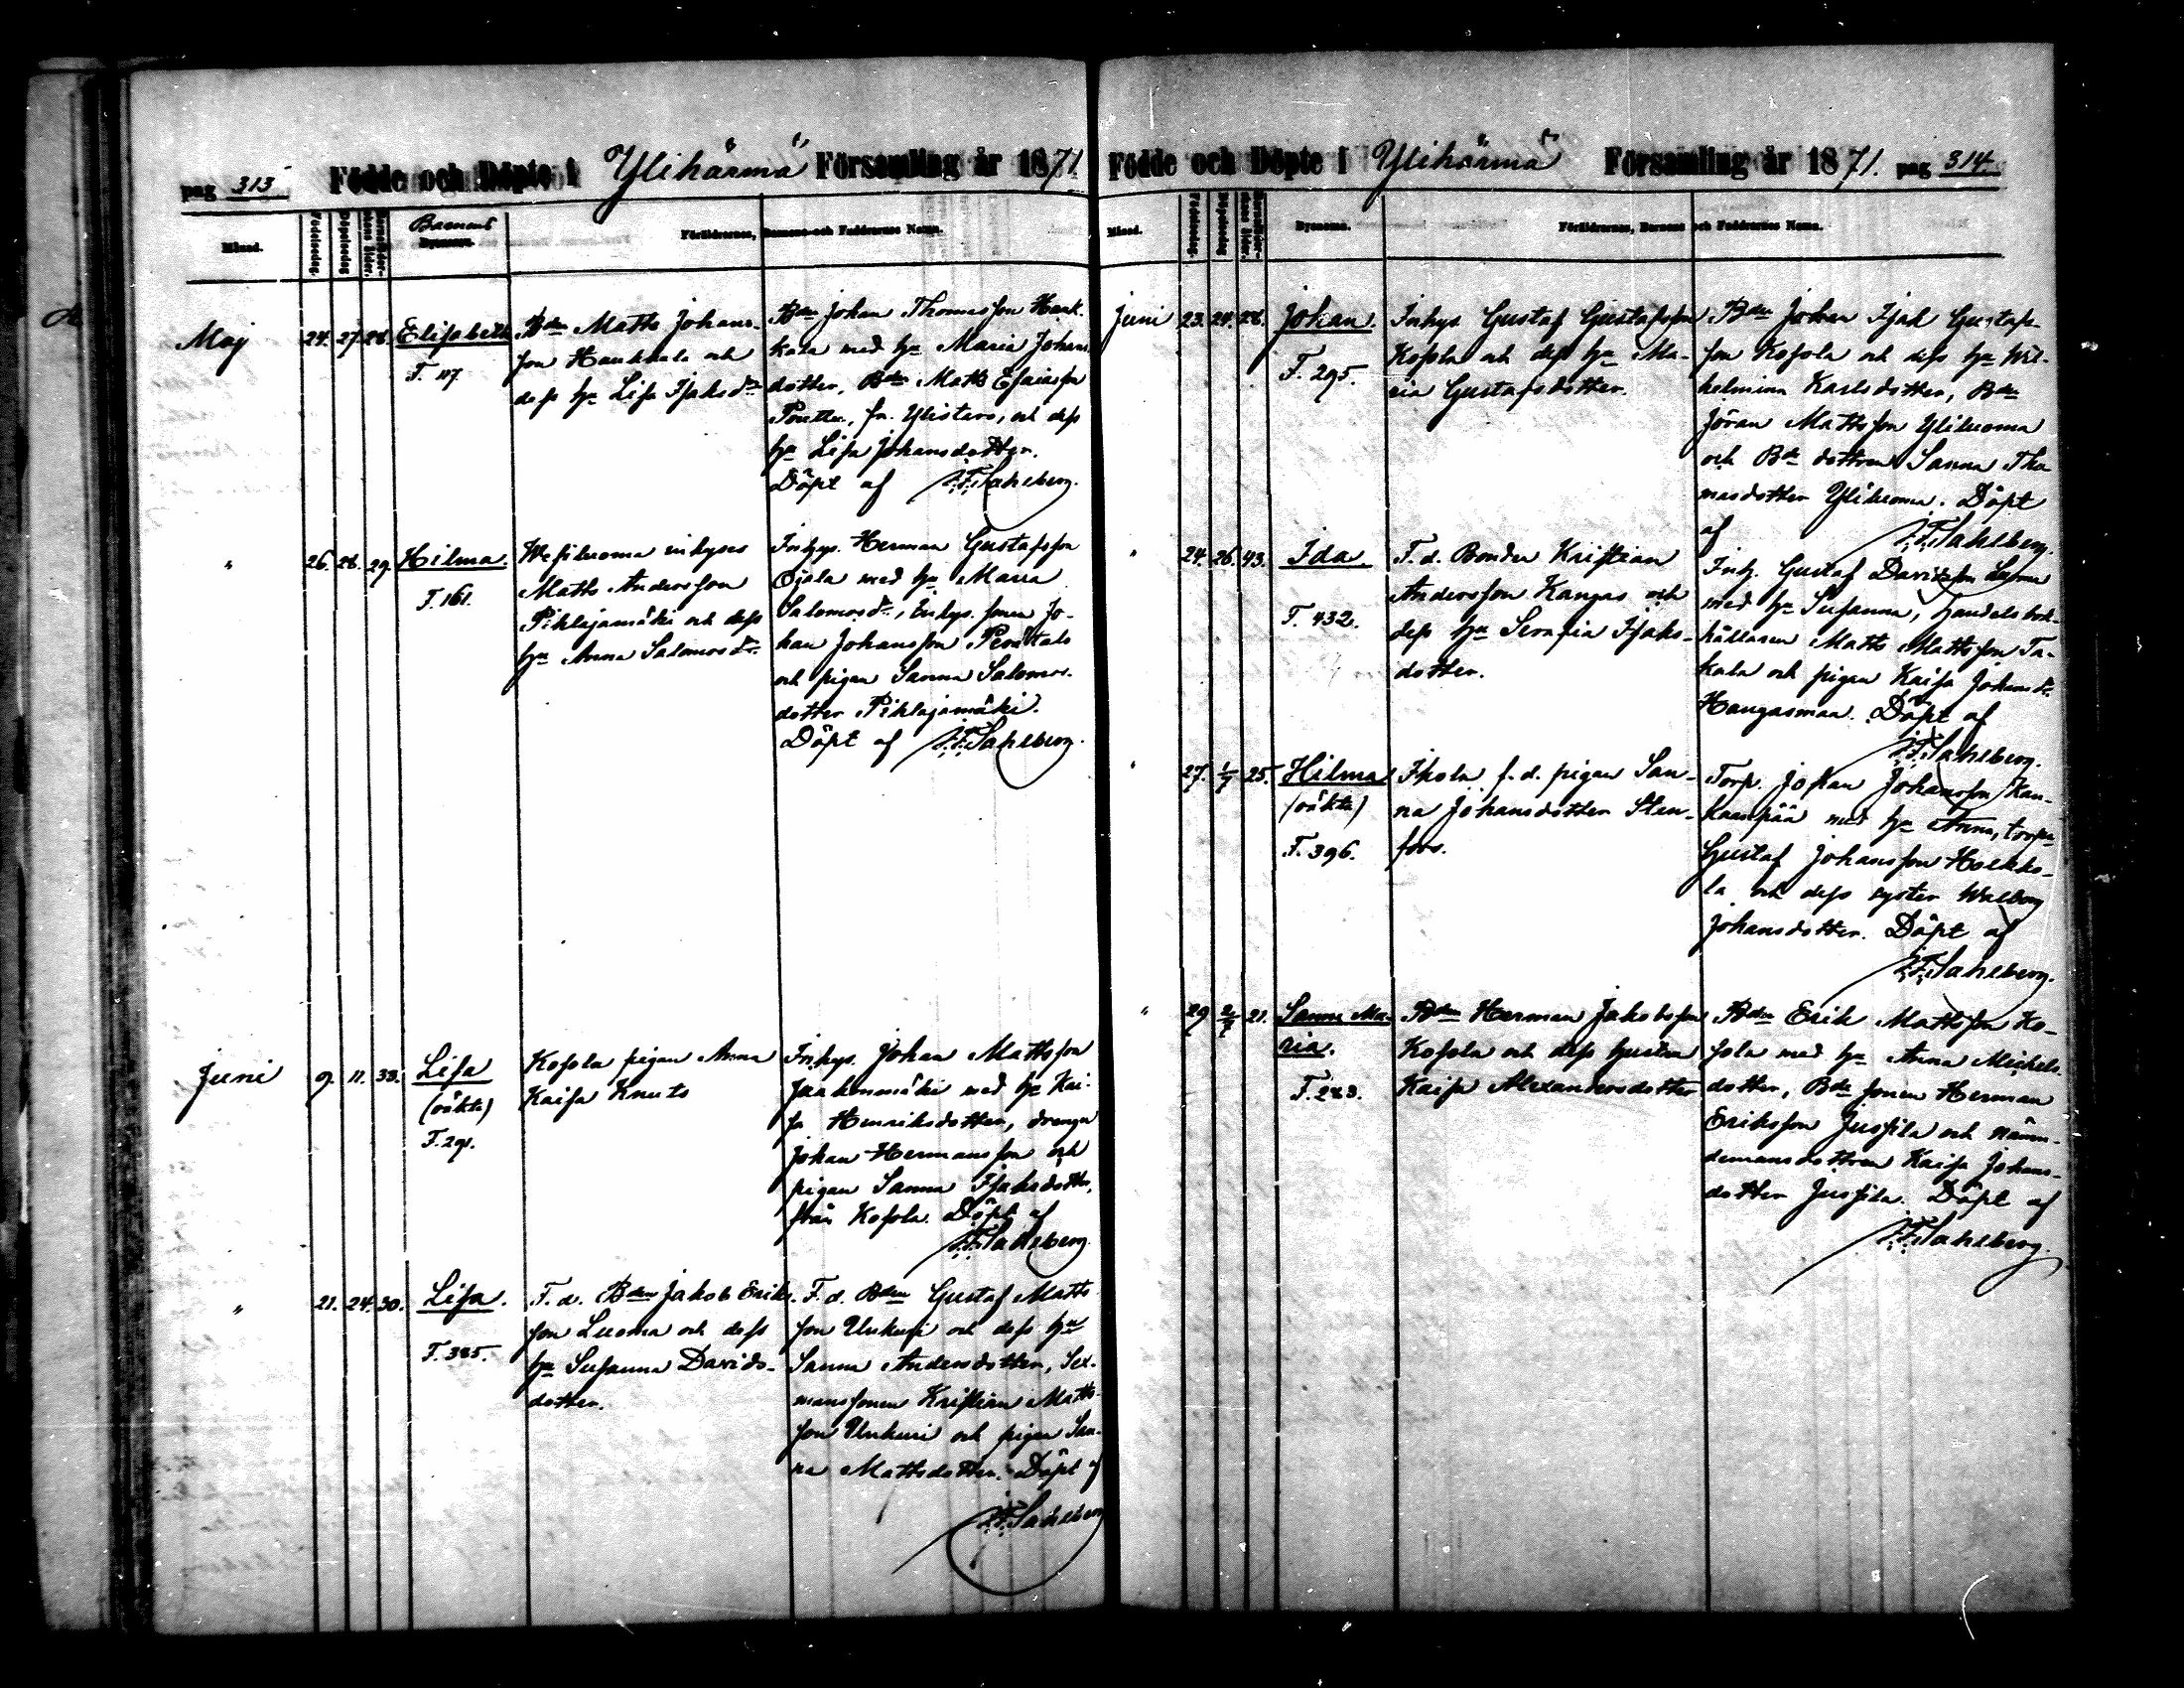 pag 313
Födde och Döpte i Ylihärmä Församling år 1871
Månad.
Födelsedag.
Döpelsedag
Barnens
Bynamn.
Föräldrarnes, Barnens och Faddrarnes Namn.
Maj
24. 27. 28.
Elisabeth
F. 117.
Bdn Matts Johans-
son Hankkala och
dess hu Lisa Isaksdr
Bdn Johan Thomasson Hank-
kala med hu Maria Johans
dotter, Bdn Matts Esaiasson
fr. Ylistaro, och dess
hu Lisa Johansdotter.
Döpt af J.F. Sahlberg.
"
26. 28. 29.
Hilma.
F. 161.
Wesiluoma inhyses
Matts Andersson
Pihlajamäki och dess
hu Anna Salomonsdr.
Inhys. Herman Gustafsson
Ojala med hu Maria
Salomonsdr, Inhys. sonen Jo-
han Johansson Penttala
och pigan Sanna Salomons-
dotter Pihlajamäki.
Döpt af J.F. Sahlberg.
Juni
9. 11. 33.
Lisa
(oäkta)
F. 291.
Kosola pigan Anna
Kaisa Knuts
Inhys. Johan Mattsson
Jaakonmäki med hu Kai-
sa Henriksdotter, drengen
Johan Hermansson och
pigan Sanna Isaksdotter,
från Kosola. Döpt af
J.F. Sahlberg.
"
21. 24. 30.
Lisa.
F. 385.
F. d. Bdn Jakob Eriks-
son Luoma och dess
hu Susanna Davids-
dotter.
F. d. Bdn Gustaf Matts
son Unkuri och dess hu
Sanna Andersdotter, Sex-
mansonen Kristian Matts-
son Unkuri och pigan San-
na Mattsdotter. Döpt af
J.F. Sahlberg
Födde och Döpte i Ylihärmä Församling år 1871. pag 314.
Månad.
Födelsedag.
Döpelsedag
Bynamn.
Föräldrarnes, Barnens och Faddrarnes Namn.
Juni
23. 24. 28.
Johan.
F. 295.
Inhys Gustaf Gustafsson
Kosola och dess hu Ma-
ria Gustafsdotter.
Bdn Johan Isak Gustafs-
son Kosola och dess hu Wil-
helmina Karlsdotter, Bdn
Jöran Mattsson Yliluoma
och Bde dottren Sanna Tho
masdotter Yliluoma. Döpt
af J.F. Sahlberg.
"
24. 26. 43.
Ida.
F. 432.
F. d. Bonden Kristian
Andersson Kangas och
dess hu Serafia Isaks-
dotter.
Inh. Gustaf Davidsson Luoma
med hu Susanna, handels bok-
hållaren Matts Mattsson Ta-
kala och pigan Kaisa Johansdr.
Hangasmaa. Döpt af
J.F. Sahlberg.
"
27. 1/7 25.
Hilma
(oäkta)
F. 396.
Ikola f. d. pigan San-
na Johansdotter Sten-
fors.
Torp. Johan Johansson Kan-
kaanpää med hu Anna, torpn
Gustaf Johansson Hoekko-
la och dess syster Walborg
Johansdotter. Döpt af
J.F. Sahlberg.
"
29 2/7 21.
Sanna Ma-
ria.
F. 283.
Bdn Herman Jakobsson
Kosola och dess hustru
Kaisa Alexandersdotter
Bdn Erik Mattsson Ko-
sola med hu Anna Michels-
dotter, Bde sonen Herman
Eriksson Jussila och nämn-
demansdottren Kaisa Johans-
dotter Jussila. Döpt af
J.F. Sahlberg.